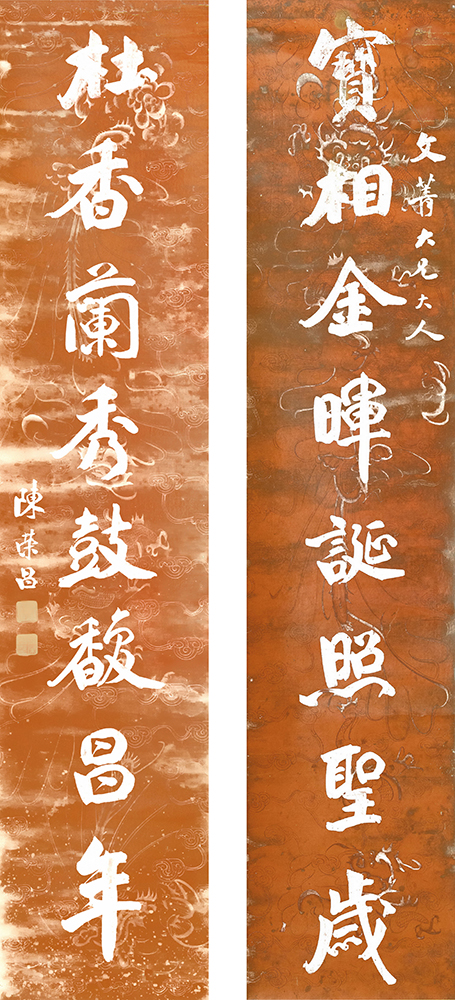 文菁大兄大人
寶相金暉誕照聖歲
杜香蘭秀鼓馥昌年
陳榮昌